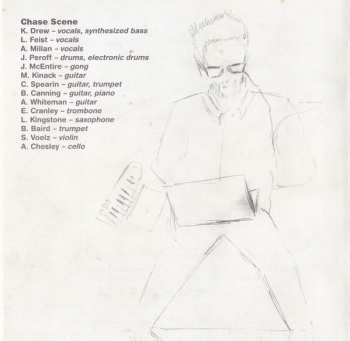 Chase Scene
K. Drew – vocals, synthesized bass
L. Feist – vocals
A. Millan – vocals
J. Peroff – drums, electronic drums
J. McEntire – gong
M. Kinack – guitar
C. Spearin – guitar, trumpet
B. Canning – guitar, piano
A. Whiteman – guitar
E. Cranley – trombone
L. Kingstone – saxophone
B. Baird – trumpet
S. Voelz – violin
A. Chesley – cello